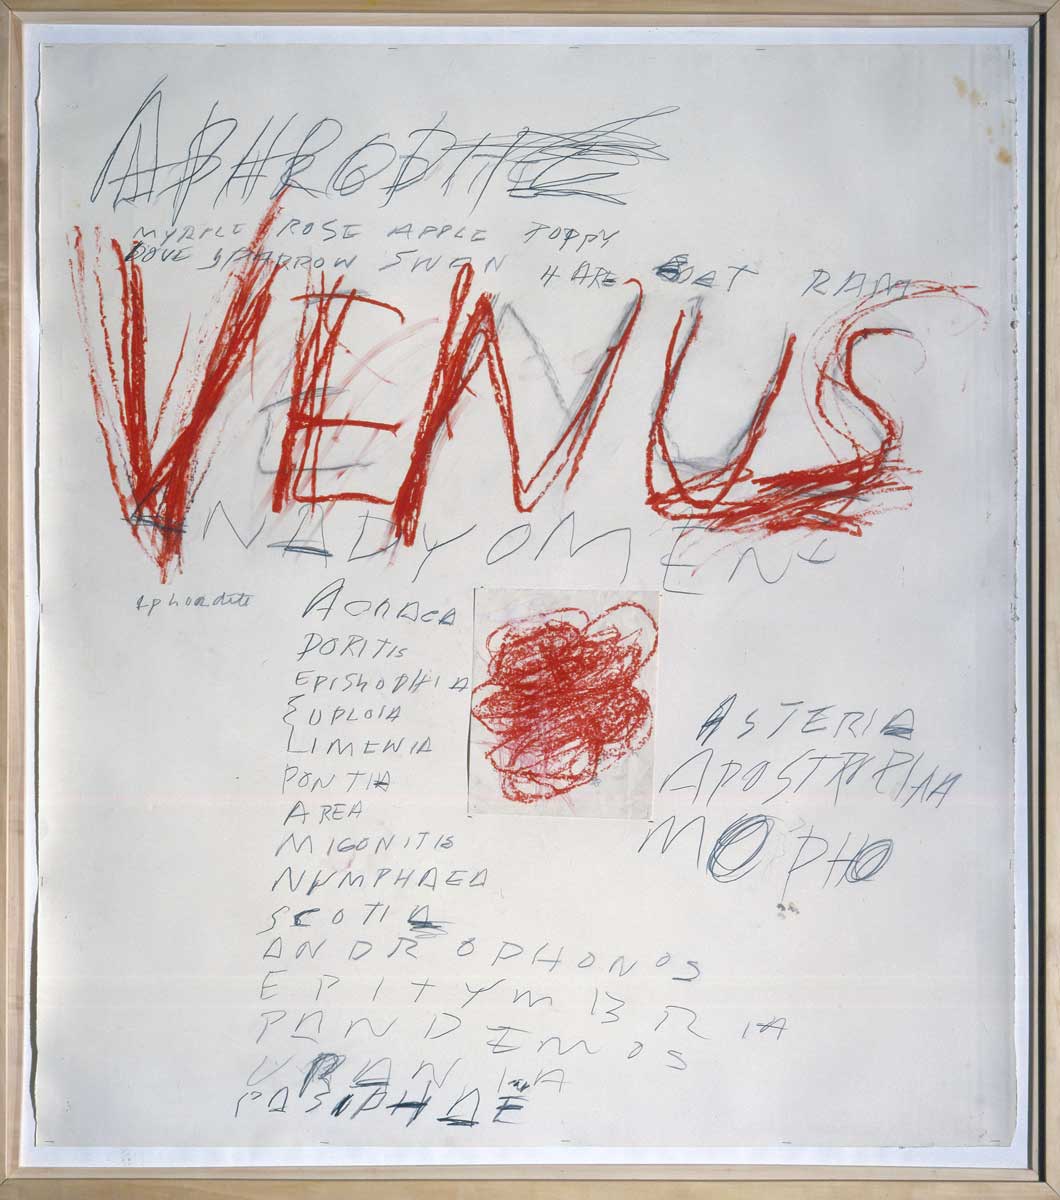 APHRODITE
MYRTLE ROSE APPLE POPPY
DOVE SPARROW SWAN HARE GOAT RAM
VENUS
ANADYOMENE
Aphrodite
DORITIS
EPISKOPHIA
EUPLOIA
LIMENIA
PONTIA
AREA
MIGONITIS
NYMPHAEA
SCOTIA
ANDROPHONOS
EPITYMBRIA
PANDEMOS
URANIA
PASIPHAE
ASTERIA
APOSTROPHIA
MOPHO